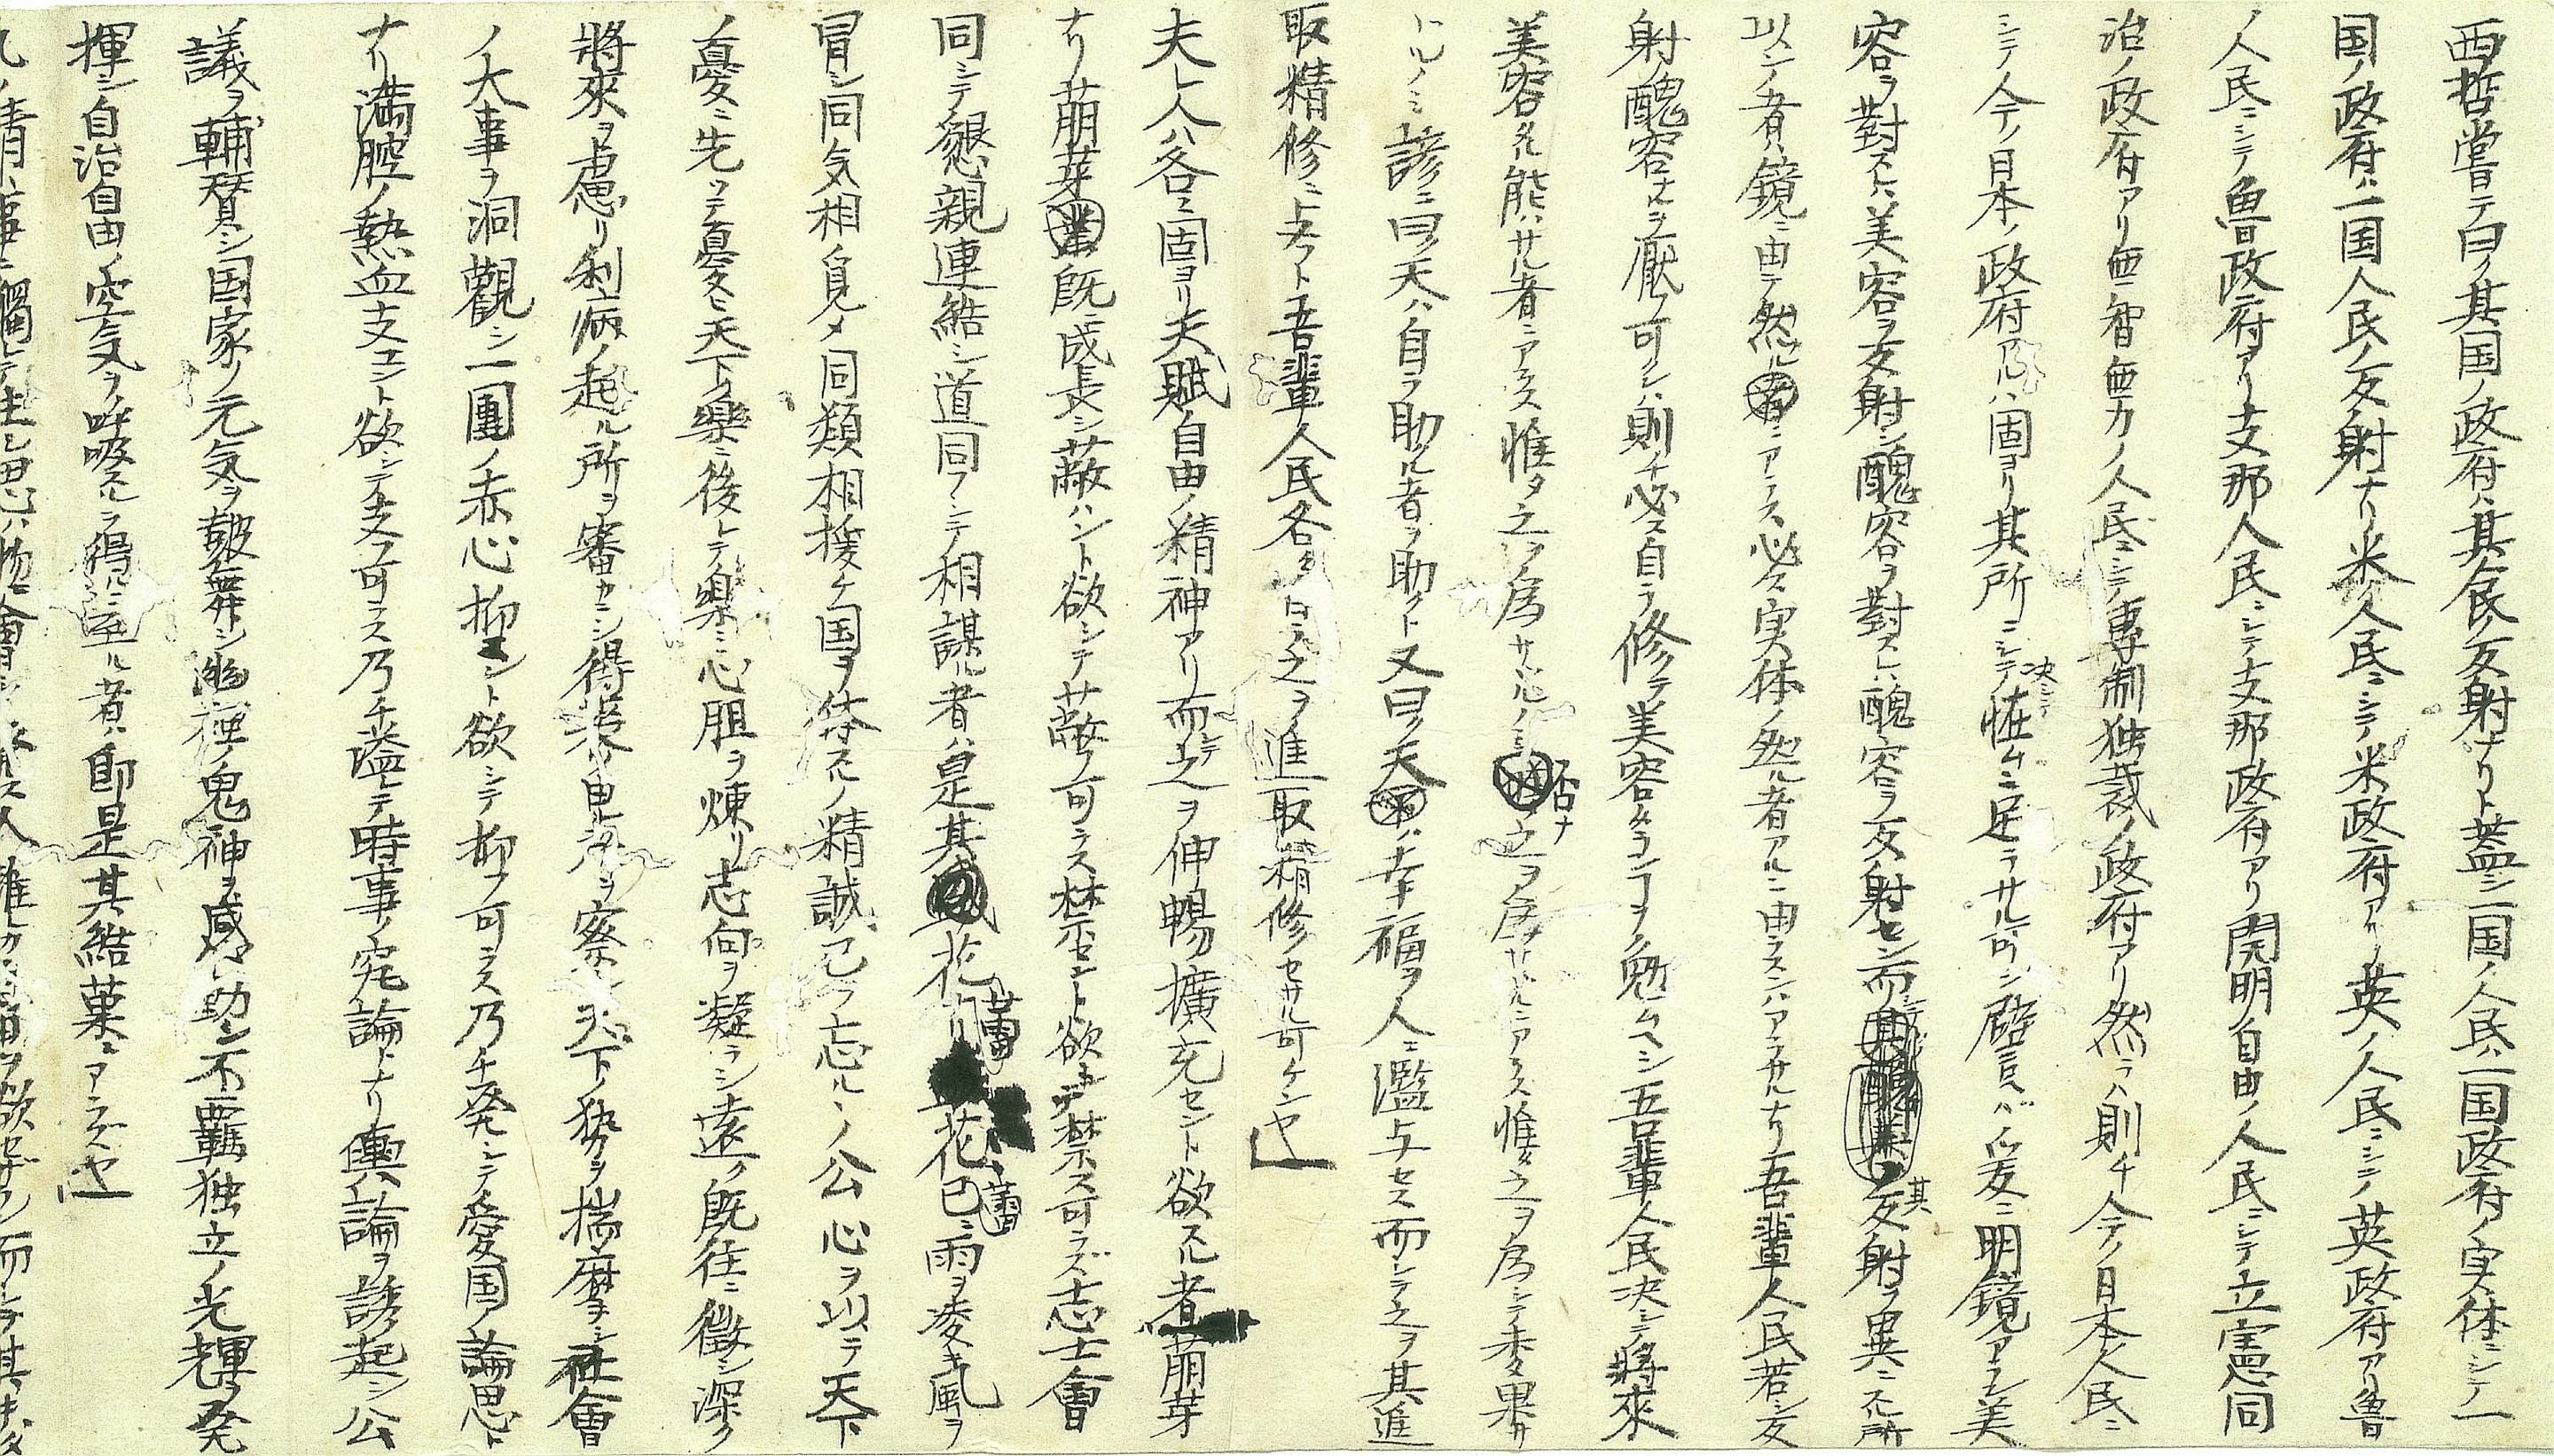 西哲嘗テ曰ク其国ノ政府ハ其人民ノ反射ナリト蓋シ一国ノ人民ハ一国政府ノ実体ニシテ一
国ノ政府ハ一国人民ノ反射ナリ米ノ人民ニシテ米政府アリ英ノ人民ニシテ英政府アリ魯
ノ人民ニシテ魯政府アリ支那人民ニシテ支那政府アリ開明自由ノ人民ニシテ立憲同
治ノ政府アリ無智無力ノ人民ニシテ専制独裁ノ政府アリ然ラハ則チ今ノ日本人民ニ
シテ今ノ日本ノ政府アルハ固ヨリ其所ニシテ決シテ怪ムニ足ラサル可シ譬言ハバ爰ニ明鏡アラン美
容ヲ對スレハ美容ヲ反射シ醜容ヲ對スレハ醜容ヲ反射セン而シテ其反射ヲ異ニスル所
以ンノ者ハ鏡ニ由テ然ルニアラス必ス実体ノ然ル者アルニ由ラスンハアラサルナリ吾輩人民若シ反
射ノ醜容ナルヲ厭フ可クンハ則チ必ス自ラ修テ美容タランコヲ勉ムヘシ吾輩人民決シテ將來
美容タル能ハサル者ニアラス惟タ之ヲ為サヽルノミ否ナ之ヲ為サヽルニアラス惟タ之ヲ為シテ未タ果サ
ヽルノミ諺ニ曰ク天ハ自ラ助クル者ヲ助クト又曰ク天ハ幸福ヲ人ニ濫与セス而シテ之ヲ其進
取精修ニ与フト吾輩人民各々日ニ之ヲ進取精修セサル可ケンヤ
夫レ人ハ各々固ヨリ天賦自由ノ精神アリ而シテ之ヲ伸暢擴充セント欲スル者萠芽
ナリ萠芽既ニ成長シ蔽ハント欲シテ蔽フ可ラス禁セント欲シテ禁ス可ラズ志士會
同シテ懇親連結シ道同フシテ相謀ル者ハ是其花蕾ナリ花蕾已ニ雨ヲ凌キ風ヲ
冒シ同気相負メ同類相援ケ国ヲ体スルノ精誠己ヲ忘ルヽノ公心ヲ以テ天下
ノ憂ニ先ツテ憂ヒ天下ノ樂ニ後レテ樂ミ心胆ヲ煉リ志向ヲ凝ラシ遠ク既往ニ徴シ深ク
將來ヲ慮リ利病ノ起ル所ヲ審カニシ得喪ノ由ル所ヲ察シ天下ノ勢ヲ揣摩シ社會
ノ大事ヲ洞觀シ一團ノ赤心抑エント欲シテ抑フ可ラス乃チ発シテ愛国ノ論思ト
ナリ満腔ノ熱血支エント欲シテ支フ可ラス乃チ溢レテ時事ノ究論トナリ輿論ヲ誘起シ公
議ヲ輔賛シ国家ノ元気ヲ皷舞シ幽裡ノ鬼神ヲ感助シ不羈独立ノ光輝ヲ発
揮シ自治自由ノ空気ヲ呼吸スルヲ得ルニ至ル者ハ即是其結菓ニアラスヤ
凡ソ情ハ事ニ觸レテ生シ思ハ物ニ會シ